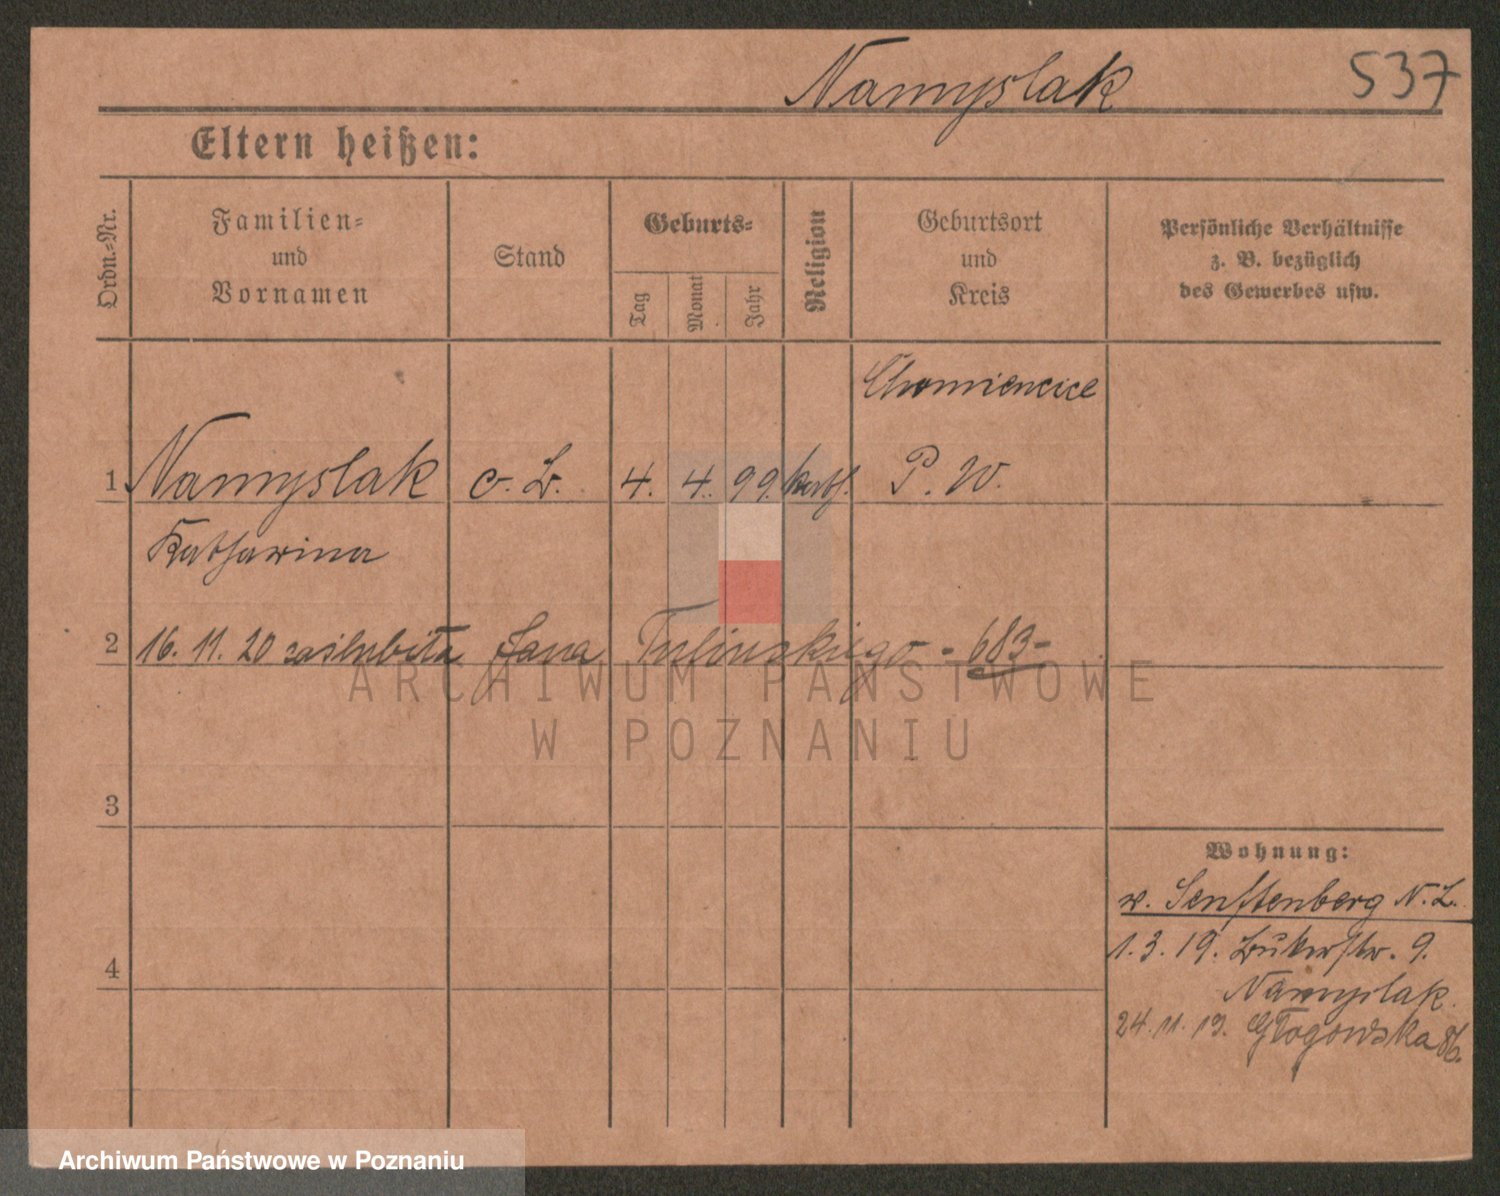 Namyslak
537
Eltern heißen:
Ordn.-Nr.
Familien-
und
Vornamen
Stand
Geburts-
Tag
Monat
Jahr
Religion
Geburtsort
und
Kreis
Persönliche Verhältnisse
z. B. bezüglich
des Gewerbes usw.
Chomiencice
1 Namyslak 4. 4. 99. kath. P. W.
Katharina
2 16. 11. 20 zaślubiła Jana - 683 -
3
4
Wohnung:
v. Senftenberg N. L.
1. 3. 19. 9.
Namyslak.
24. 11. 19. Głogowska 86.
ARCHIWUM PAŃSTWOWE
W POZNANIU
Archiwum Państwowe w Poznaniu